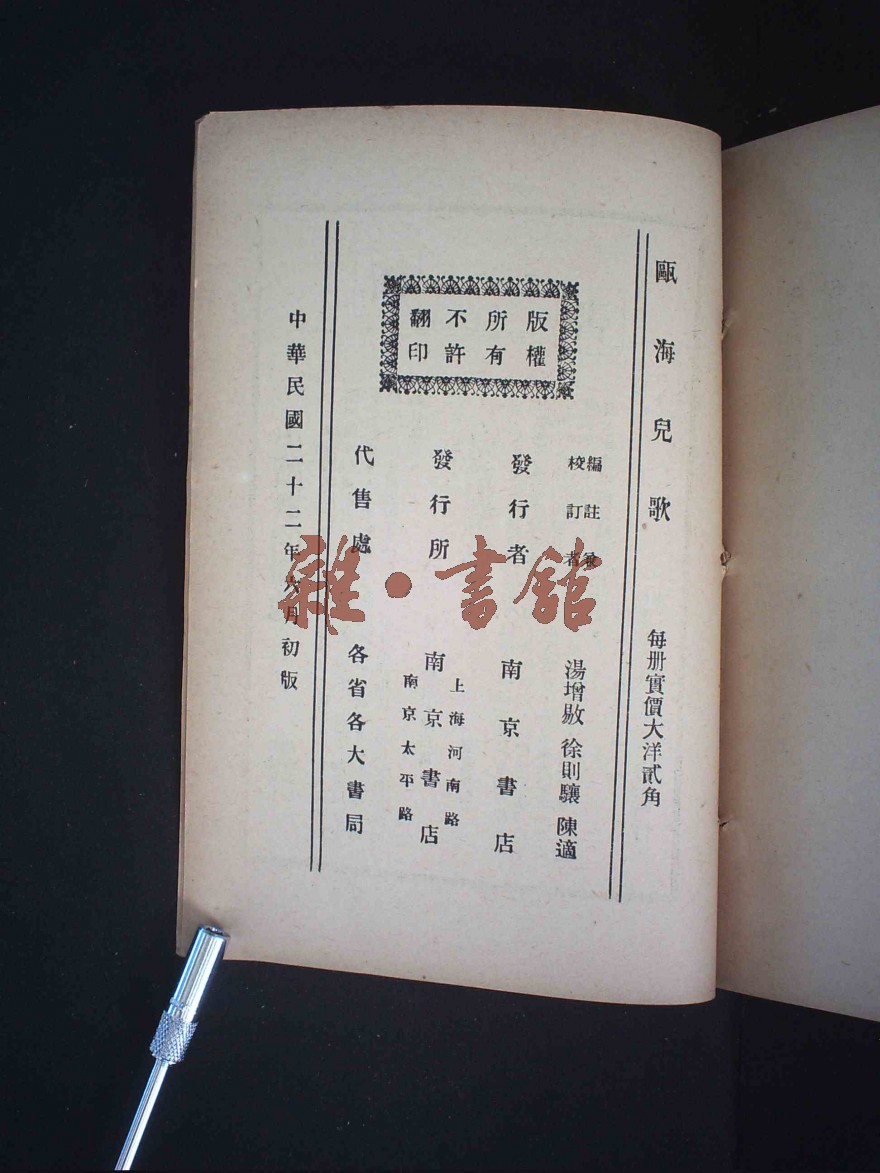 甌海兒歌 每册實價大洋貳角
版權
所有
不許
翻印
編註兼
校訂者 湯增敭 徐則驤 陳適
發行者 南京書店
發行所 南京書店
上海河南路
南京太平路
代售處 各省各大書局
中華民國二十二年六月初版
雜·書館